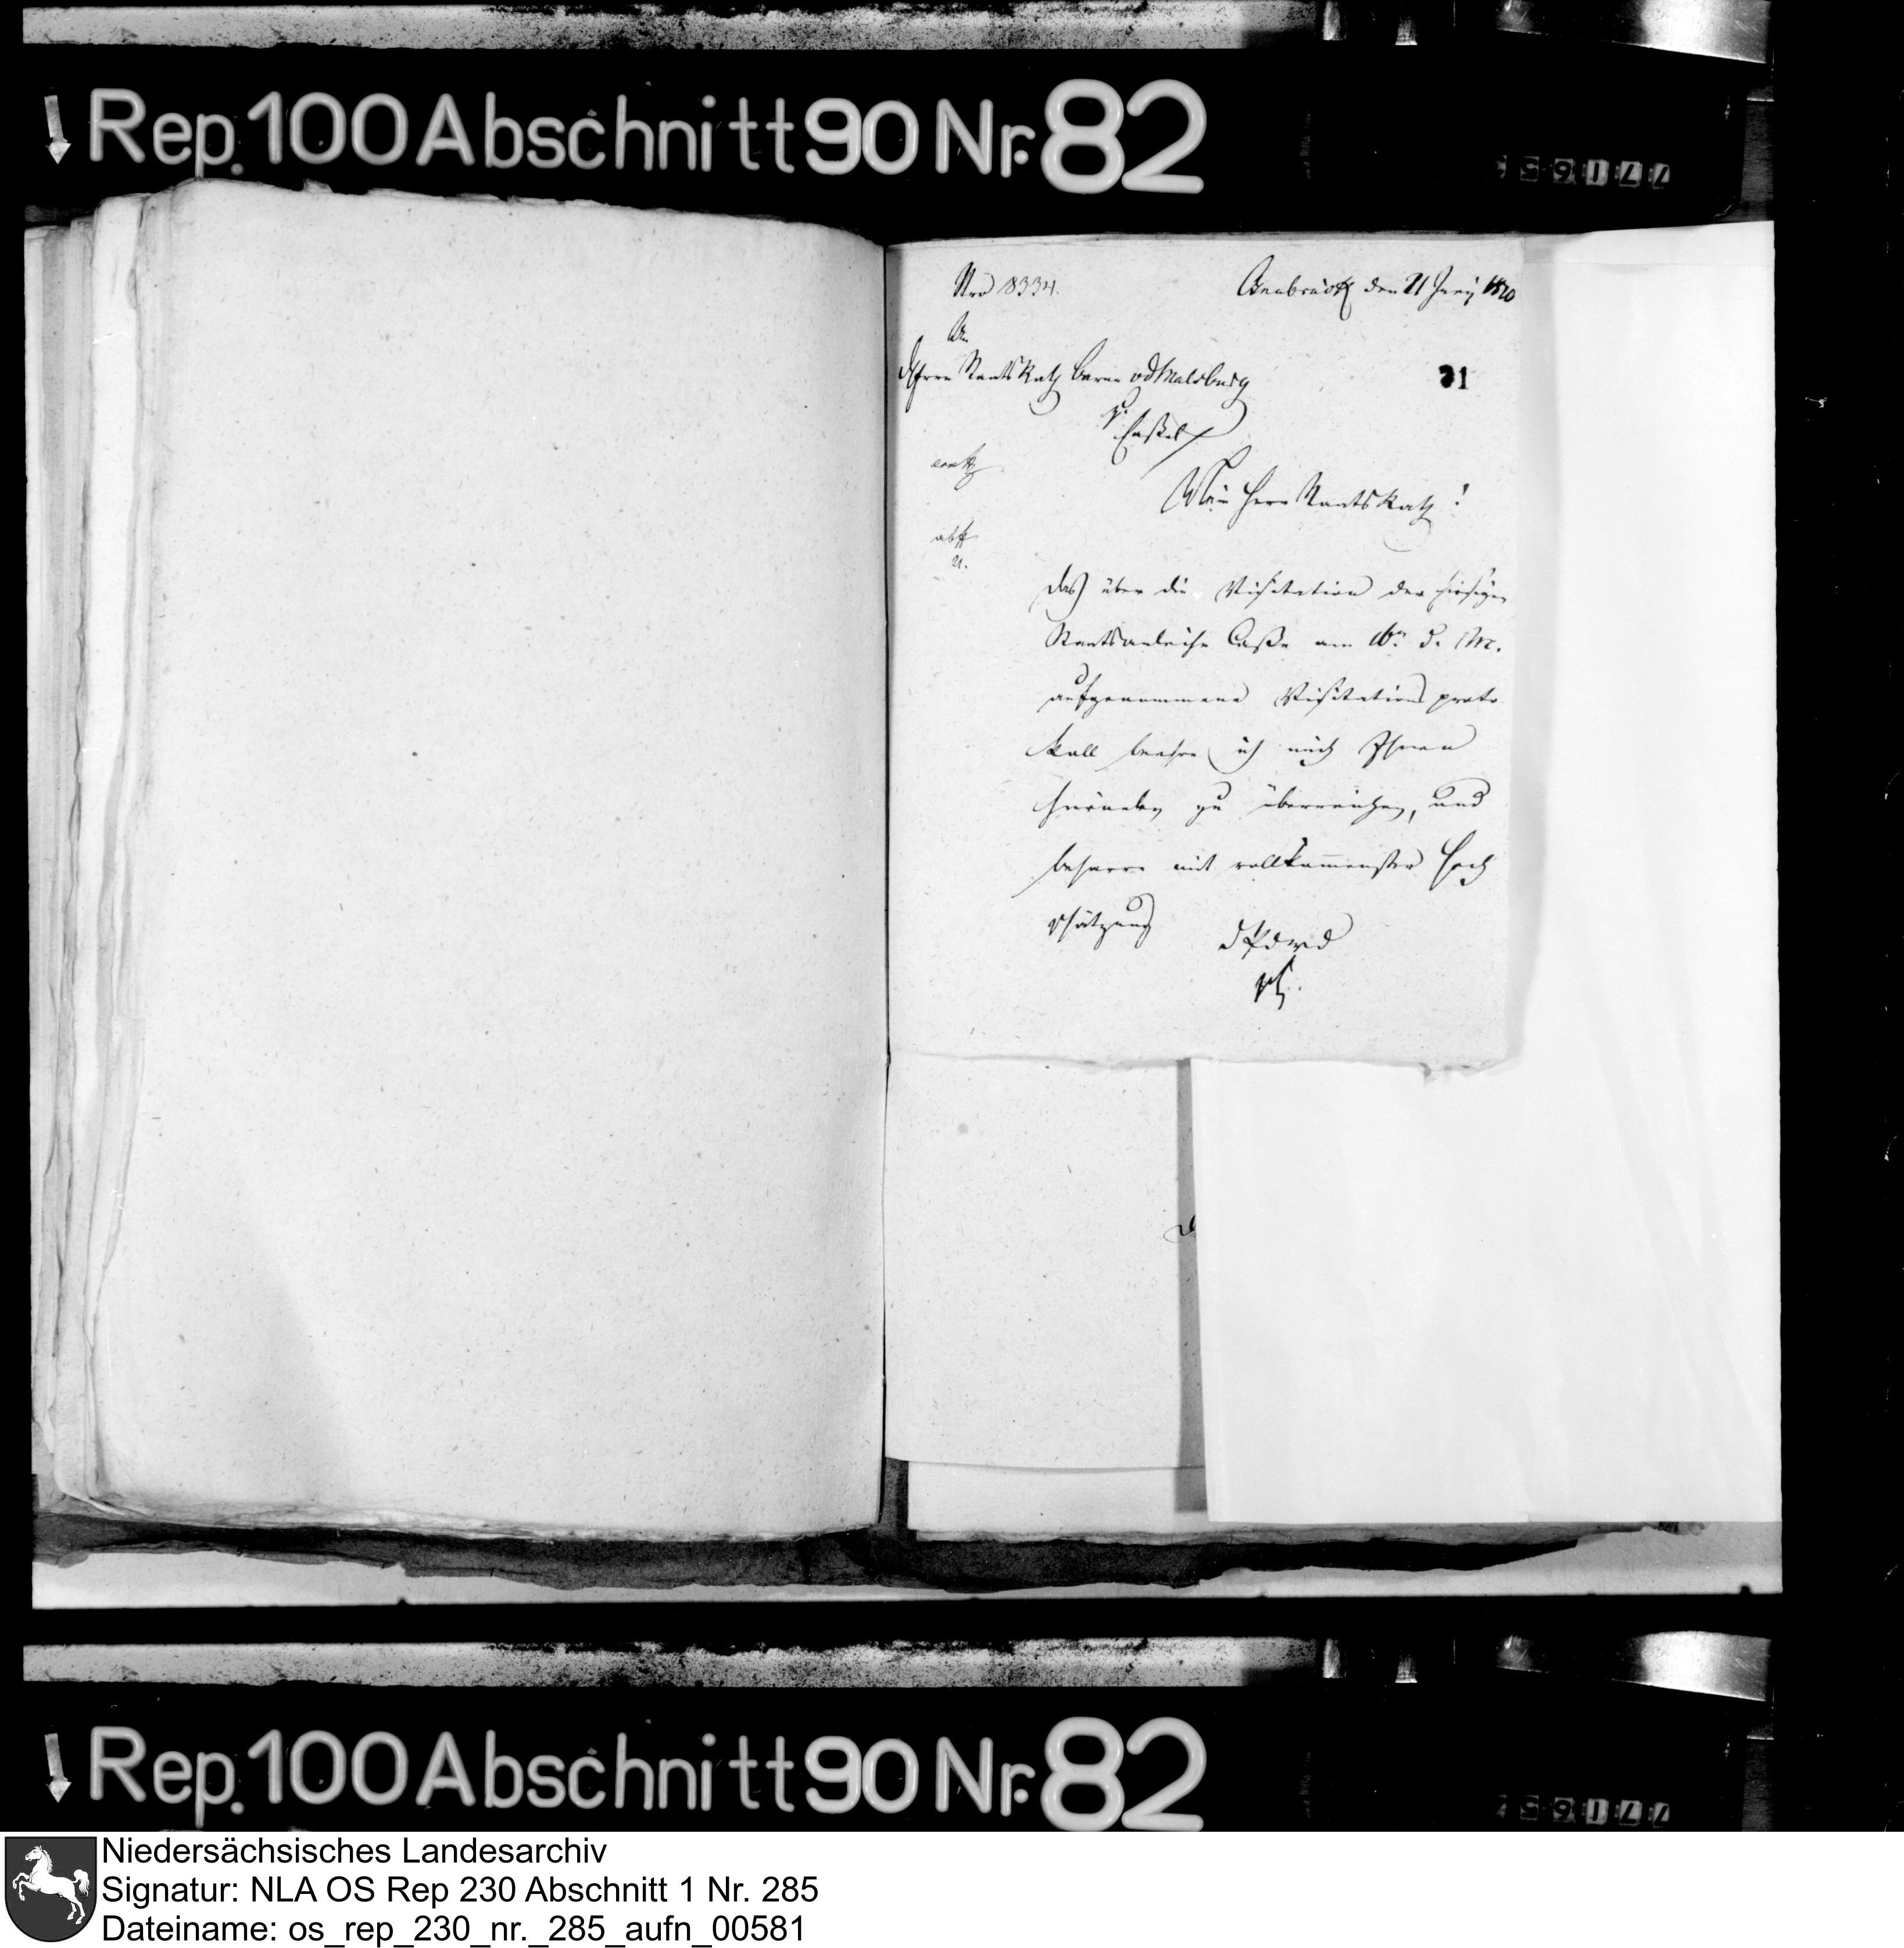 Rep. 100 Abschnitt 90 Nr. 82
Nro 8334.
Osnabrück den 21 Juny 1810
An
d Herrn Staats Rath Baron v d Malsburg
31
zu
Cassel
Mein Herr Staats Rath!
Das über die Visitation der hiesigen
Staatsanleihe Casse am 16n d. M.
aufgenommene Visitations proto
koll beehre ich mich Ihnen
hierneben zu überreichen, und
beharre mit vollkommenster Hoch
schätzung
d P d W D
Rep. 100 Abschnitt 90 Nr. 82
Niedersächsisches Landesarchiv
Signatur: NLA OS Rep 230 Abschnitt 1 Nr. 285
Dateiname: os_rep_230_nr._285_aufn_00581